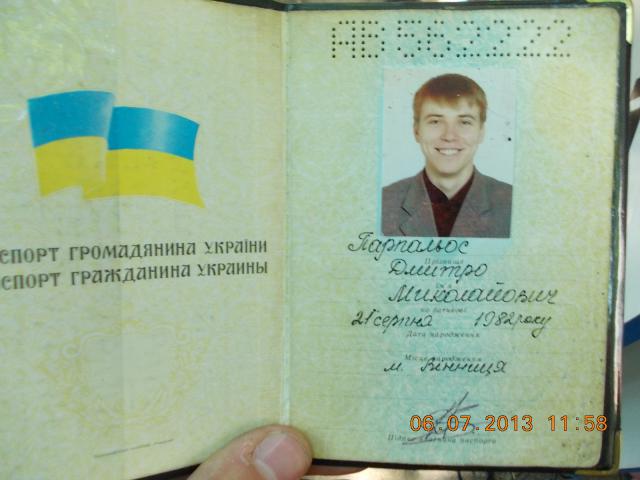 СПОРТ ГРОМАДЯНИНА УКРАЇНИ
СПОРТ ГРАЖДАНИНА УКРАИНЫ
АВ 562222
Парпальос
Прізвище
Дмитро
Ім'я
Миколайович
по батькові
21 серпня 1982 року
Дата народження
Місце народження
м. Вінниця
Підпис власника паспорта
06.07.2013 11:58